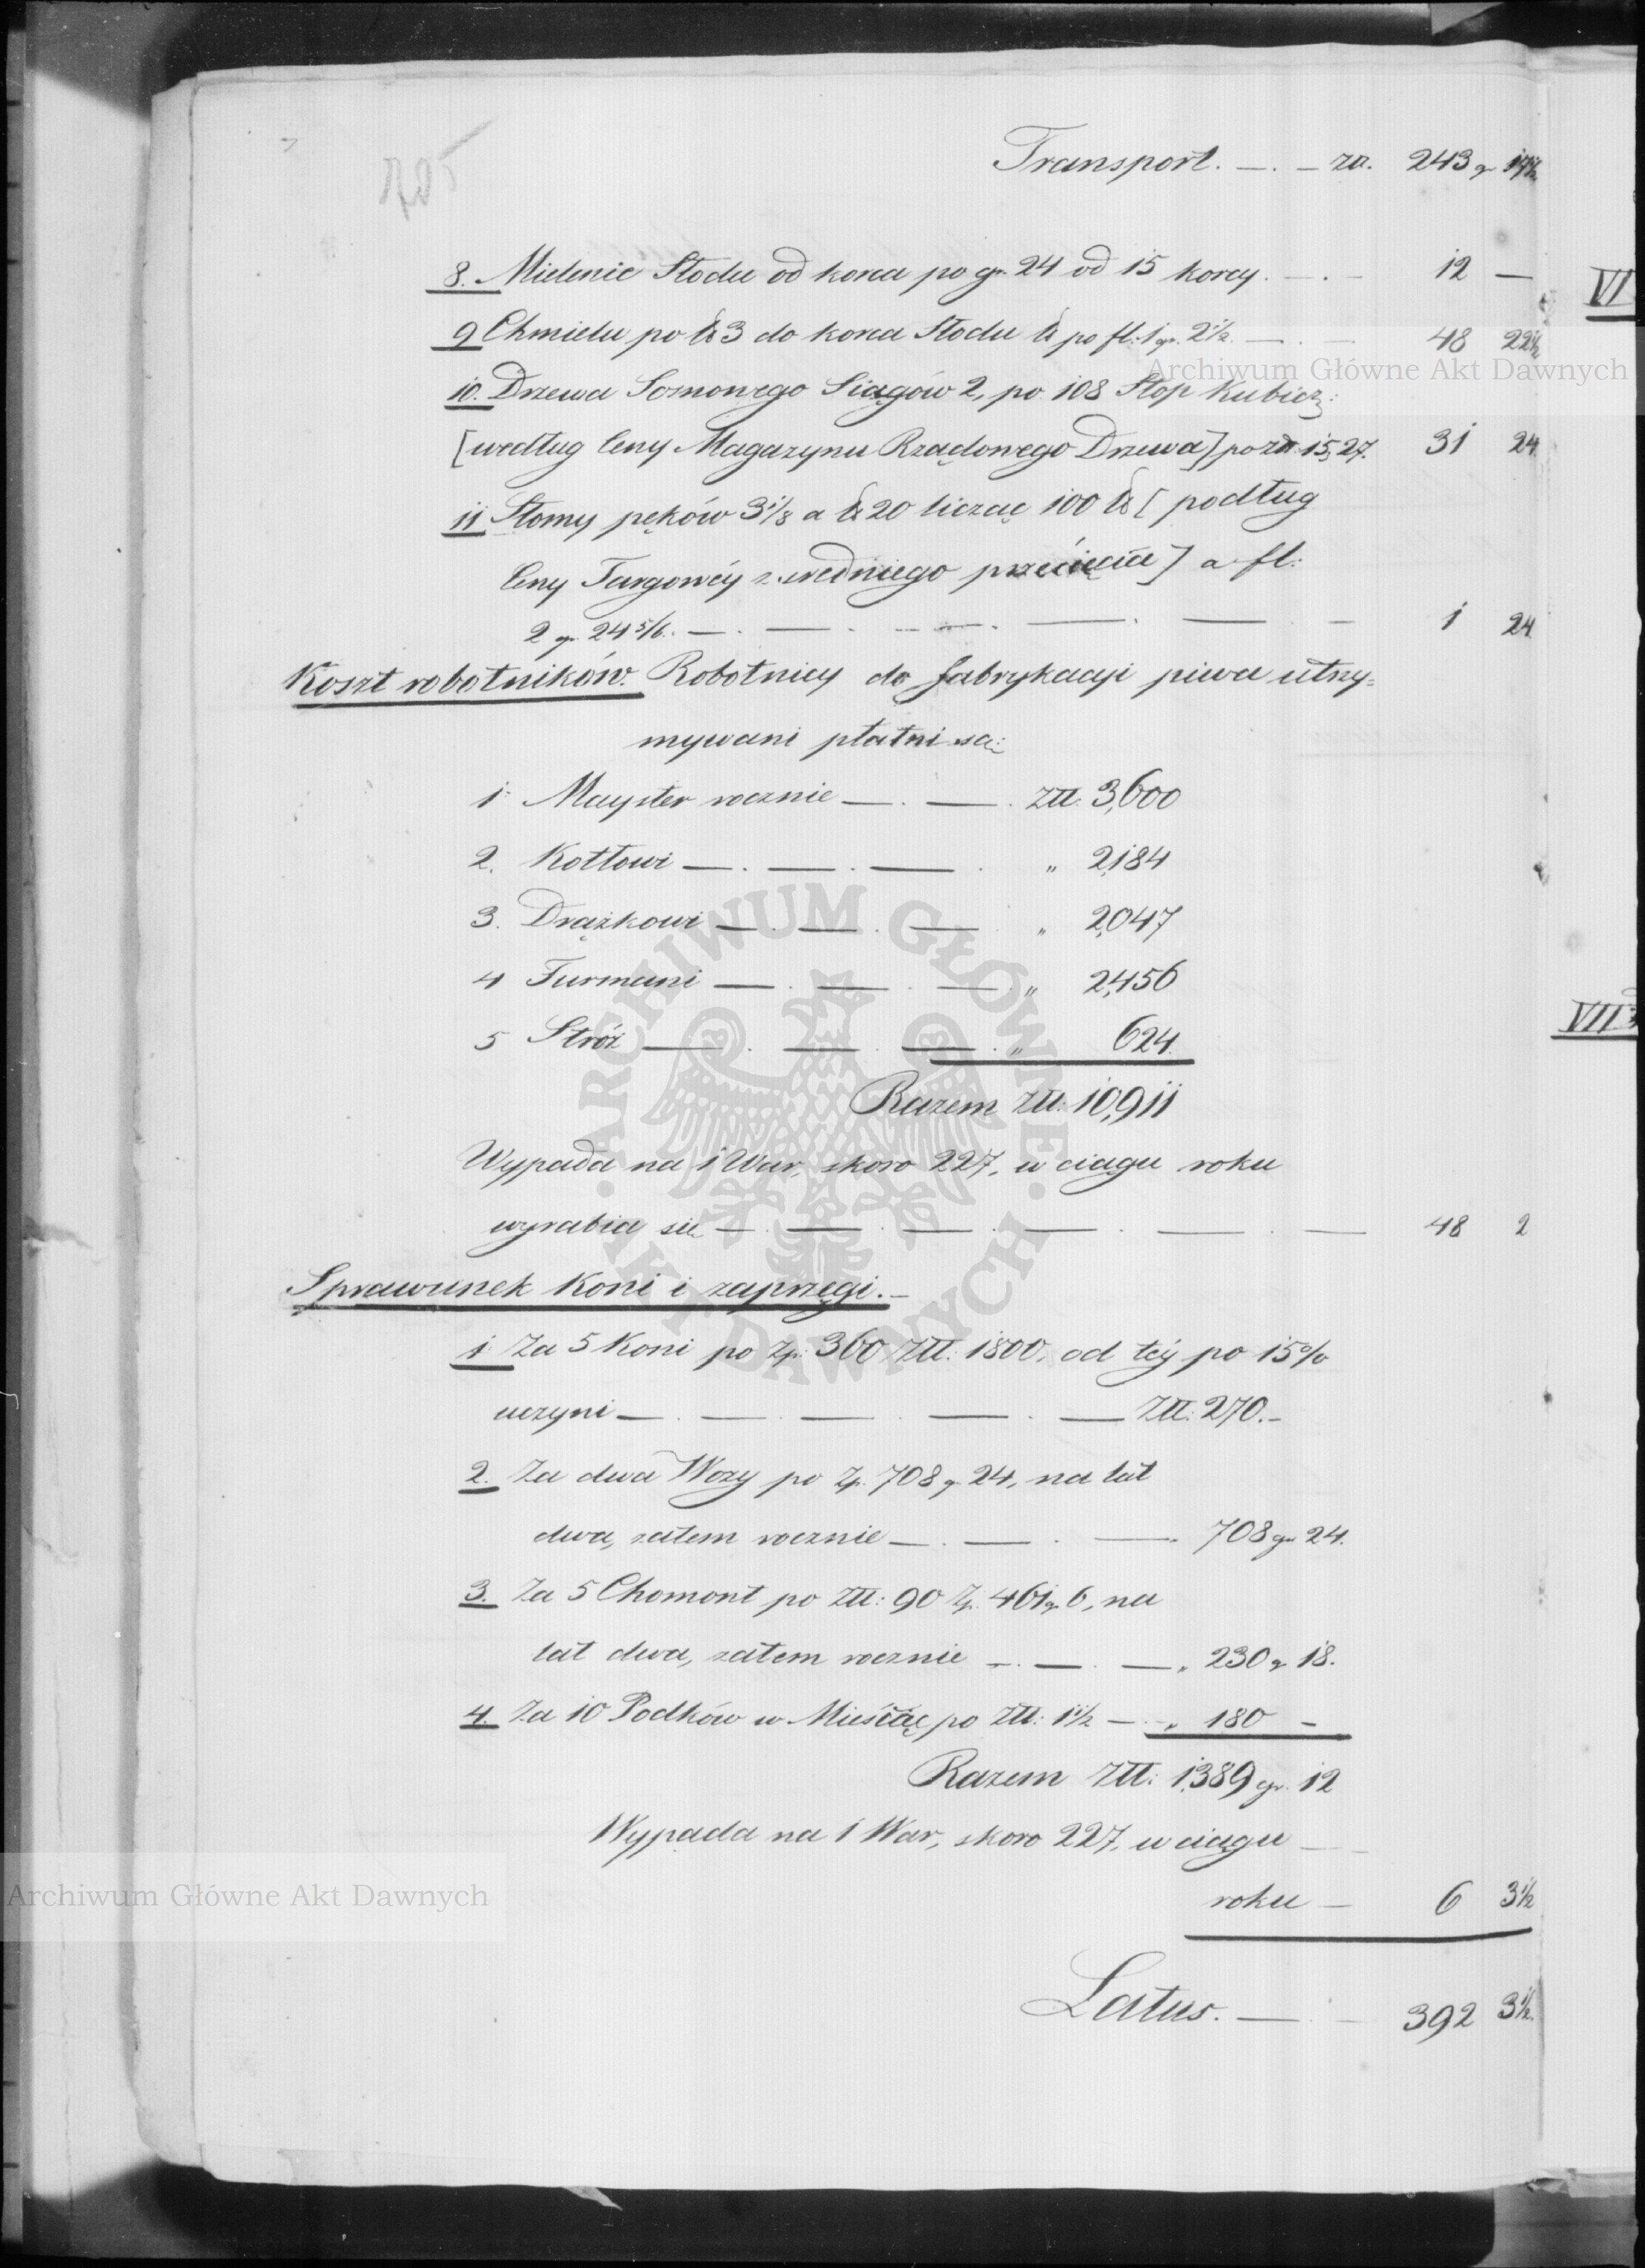 705
Transport. — . — zł. 243 gr 19½
8. Mielenie Słodu od korca po gr. 24 od 15 korcy. — . — 12 —
VI
9 Chmielu po ℔ 3 do korca Słodu ℔ po fl: 1 gr. 2½. — . — 48 22½
Archiwum Główne Akt Dawnych
10. Drzewa Sosnowego Siągów 2, po 108 Stop Kubicz:
[według Ceny Magazynu Rządowego Drzewa] po zł 15, 27. 31 24
11 Słomy pęków 3⅓ a ℔ 20 licząc 100 ℔ [podług
Ceny Targowéy z średniego przecięcia] a fl:
2 gr. 24 5/6. — . — . — . — . — — 1 24
Koszt robotników. Robotnicy do fabrykacyi piwa utrzy=
mywani płatni są:
1. Mayster rocznie — . — . Złł. 3,600
2. Kotłowi — . — . — . „ 2,184
3. Drążkowi — . — . — „ 2,047
4 Furmani — . — . — . „ 2,456
VII
5 Stróż — . — . — . „ 624.
Razem Złł. 10,911
Wypada na 1 War, skoro 227, w ciągu roku
wyrabia się — . — . — . — . — . — 48 2
Sprawunek Koni i zaprzęgi. —
1 Za 5 Koni po Zp: 360 Złł: 1800, od téy po 15%
uczyni — . — . — . — . — Złł: 270. —
2. Za dwa Wozy po Zp. 708 gr 24, na lat
dwa, zatem rocznie — . — . — . 708 gr 24.
3. Za 5 Chomont po Złł: 90 Zp. 461 gr. 6, na
lat dwa, zatem rocznie — . — . — „ 230 gr 18.
4. Za 10 Podków w Miesiąc po Złł: 1½ — . „ 180 —
Razem Złł: 1,389 gr. 12
Wypada na 1 War, skoro 227, w ciągu —
Archiwum Główne Akt Dawnych
roku — 6 3½
Latus. — . — 392 3½.
ARCHIWUM GŁÓWNE · AKT DAWNYCH ·